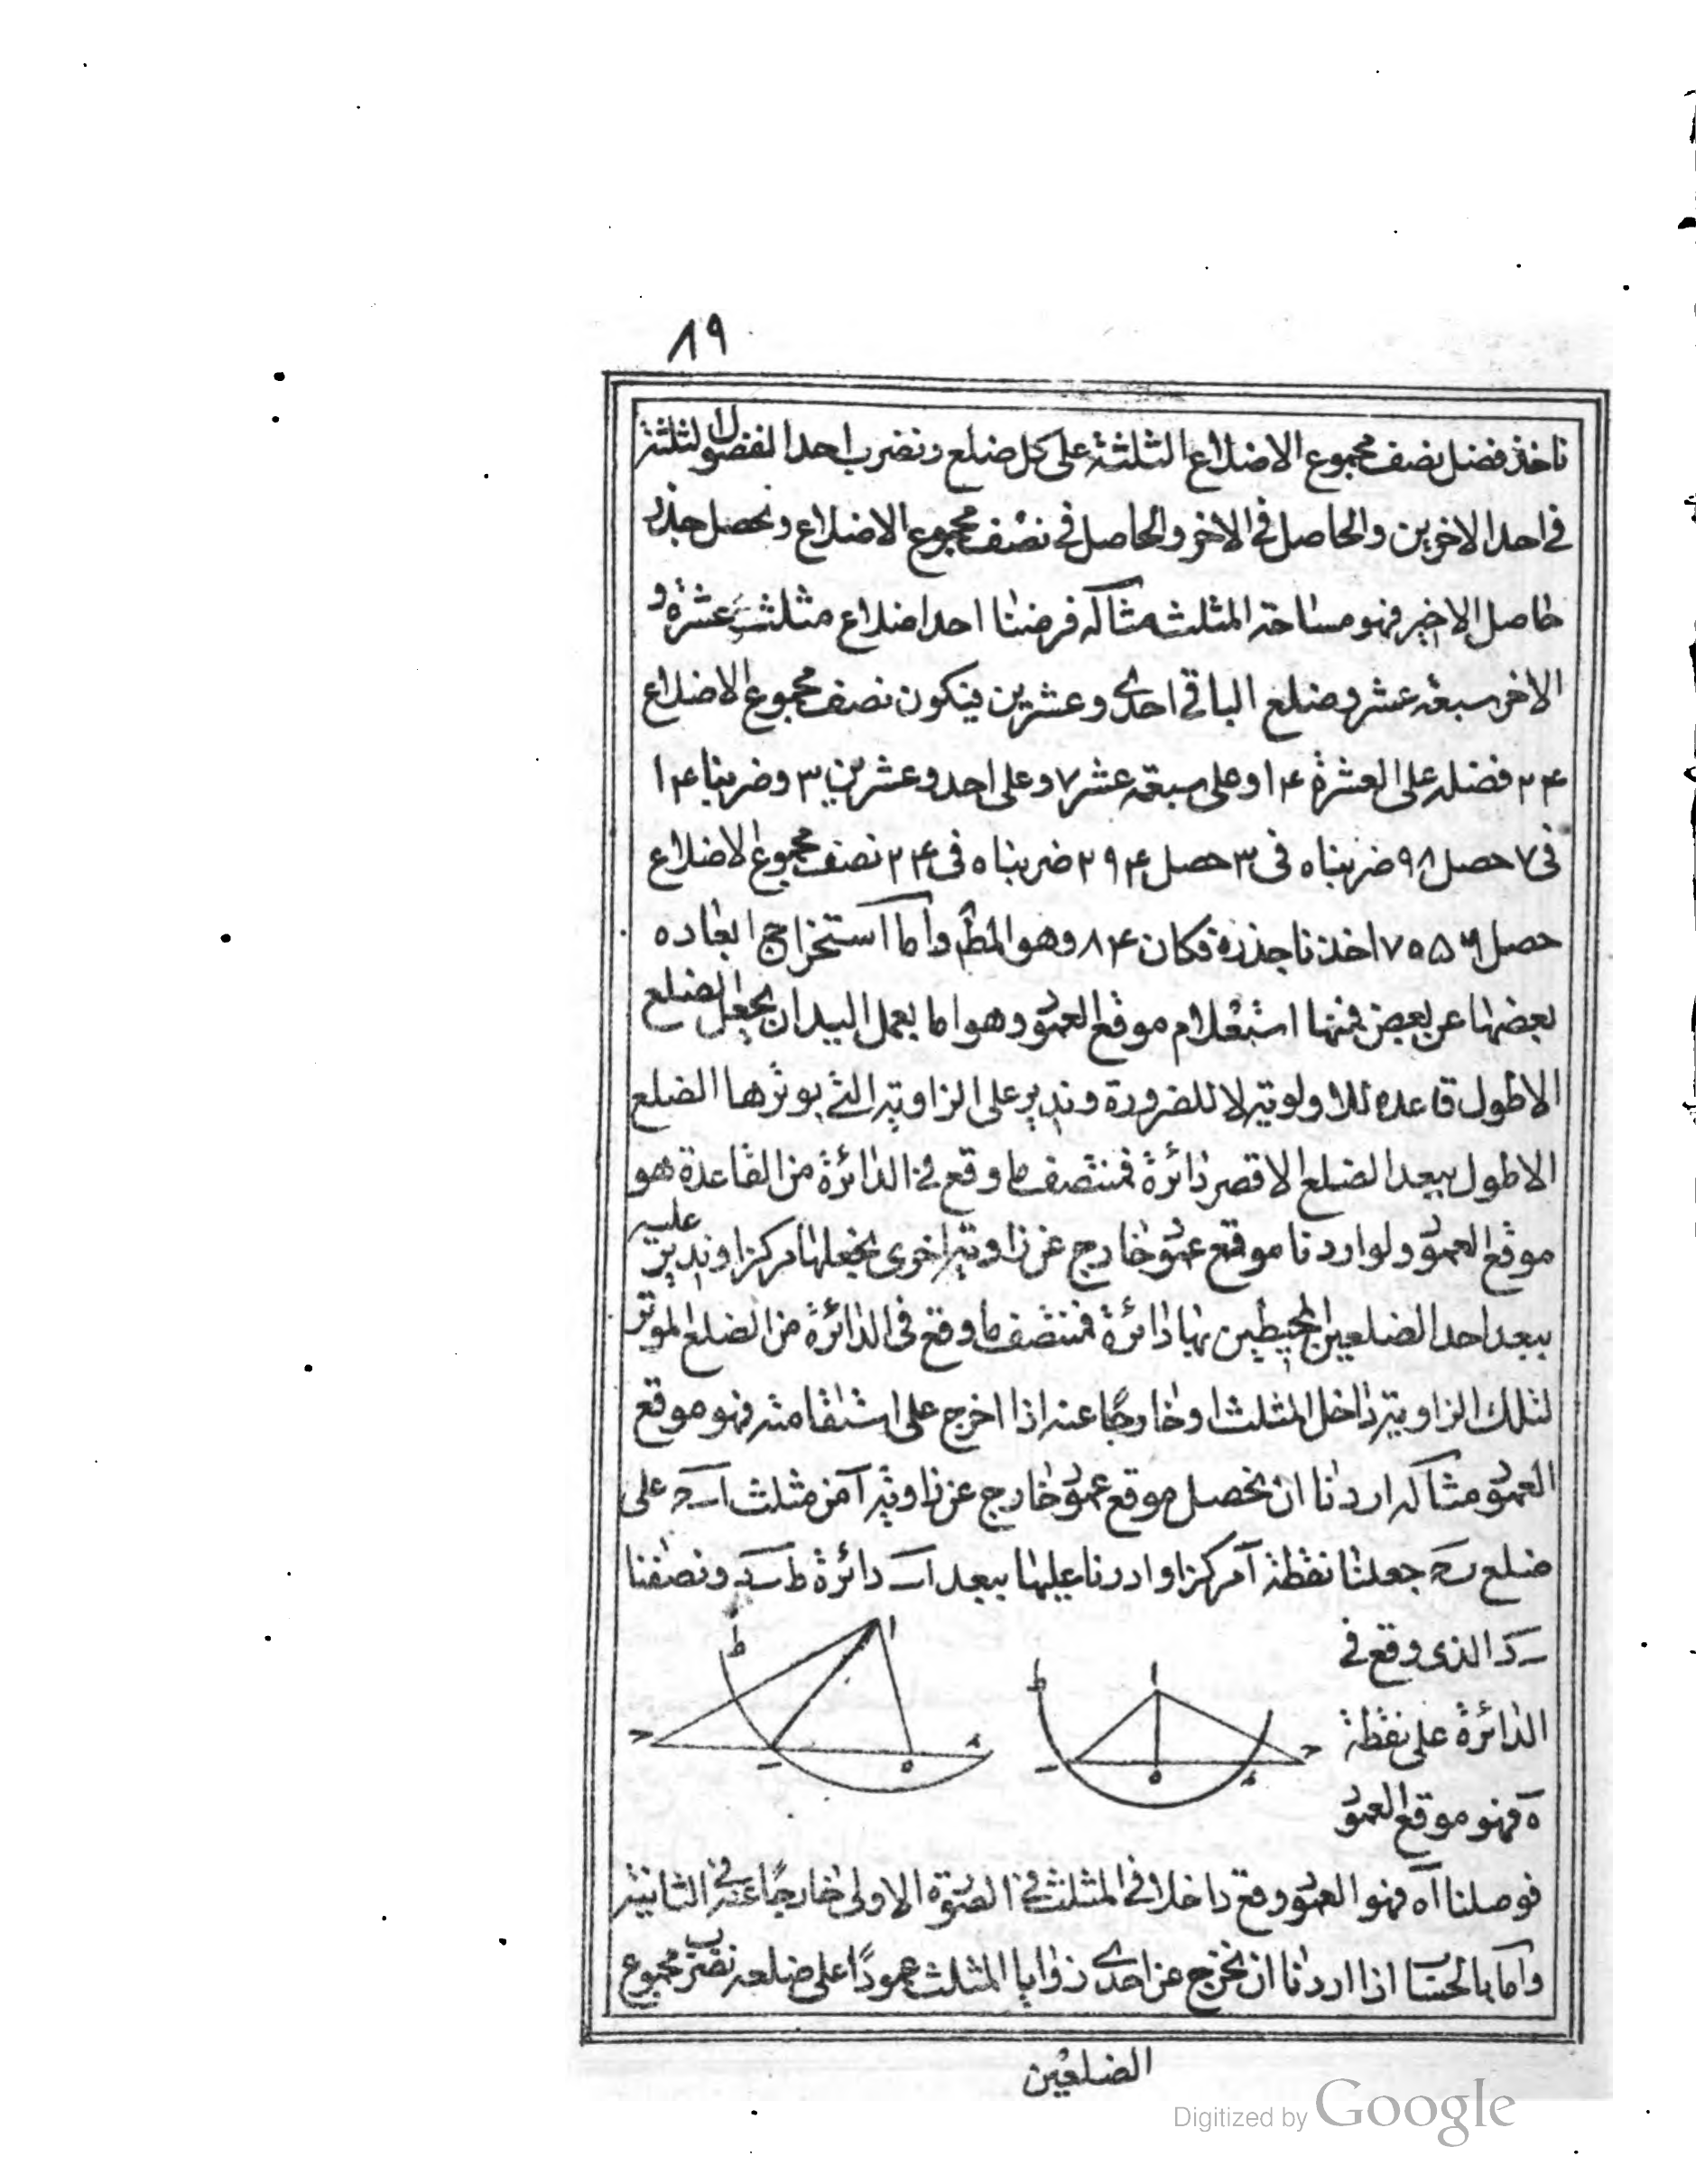 ٨٩
ناخذ فضل نصف مجموع الاضلاع الثلثة على كل ضلع ونضرب احد الفضول الثلثة
فى احد الاخرين والحاصل فى الاخر والحاصل فى نصف مجموع الاضلاع ونحصل جذر
حاصل الاخير فهو مساحة المثلث مثاله فرضنا احد اضلاع مثلث عشرة و
الاخر سبعة عشر وضلع الباقى احدى وعشرين فيكون نصف مجموع الاضلاع
٢۴ فضله على العشرة ١۴ وعلى سبعة عشر ٧ وعلى احد وعشرين ٣ وضربنا ١۴
فى ٧ حصل ٩٨ ضربناه فى ٣ حصل ٢٩۴ ضربناه فى ٢۴ نصف مجموع الاضلاع
حصل ٧٠۵٦ اخذنا جذره فكان ٨۴ وهو المط وأما استخراج ابعاده
بعضها عن بعض فمنها استعلام موقع العمود وهو اما بعمل اليد ان نجعل الضلع
الاطول قاعدة للاولوية لا للضرورة وندير على الزاوية التى يوترها الضلع
الاطول ببعد الضلع الاقصر دائرة فمنتصف ما وقع فى الدائرة من القاعدة هو
موقع العمود ولو اردنا موقع عمود خارج عن زاوية اخرى نجعلها مركزا وندير عليه
ببعد احد الضلعين المحيطين بها دائرة فمنتصف ما وقع فى الدائرة من الضلع الموتر
لتلك الزاوية داخل المثلث او خارجًا عنه اذا اخرج على استقامته فهو موقع
العمود مثاله اردنا ان نحصل موقع عمود خارج عن زاوية آ من مثلث اب‍ح على
ضلع ب‍ح جعلنا نقطة آ مركزا وادرنا عليها ببعد اب دائرة ط‍ب‍د ونصفنا
ب‍د الذى وقع فى
الدائرة على نقطة
ه فهو موقع العمود
ط ا ح ب ه د
ط ا ح ب ه د
فوصلنا اه فهو العمود وقع داخلا فى المثلث فى الصورة الاولى خارجًا عنه فى الثانية
وأما بالحساب اذا اردنا ان نخرج من احدى زوايا المثلث عمودًا على ضلعه نضرب مجموع
الضلعين
Digitized by Google